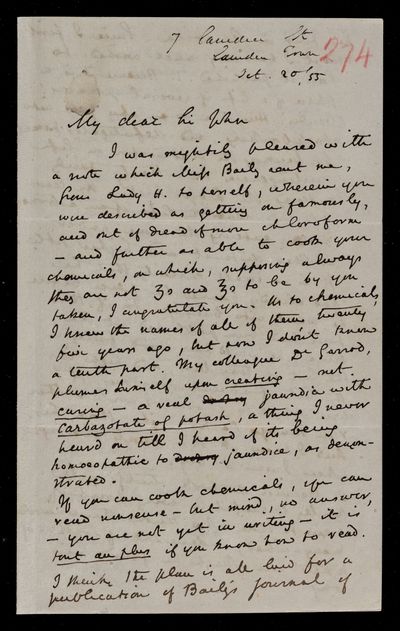 7 Camden St
Camden Town
Oct. 20/55
274
My dear Sir John
I was mightily pleased with
a note which Miss Baily sent me,
from Lady H. to herself, wherein you
were described as getting on famously,
and out of dread of more chloroform
– and further as able to cook your
chemicals, on which, supposing always
they are not ʒs and ʒs to be by you
taken, I congratulate you. As to chemicals,
I knew the names of all of them twenty
five years ago, but now I don't know
a tenth part. My colleague Dr Garrod,
plumes himself upon creating – not
curing – a real jaundice with
carbazotate of potash, a thing I never
heard on till I heard of its being
homoeopathic to jaundice, as demon-
strated.
If you can cook chemicals, you can
read nonsense – but mind, no answer,
– you are not yet in writing – it is,
tout au plus if you know how to read.
I think the plan is all laid for a
publication of Baily's journal of